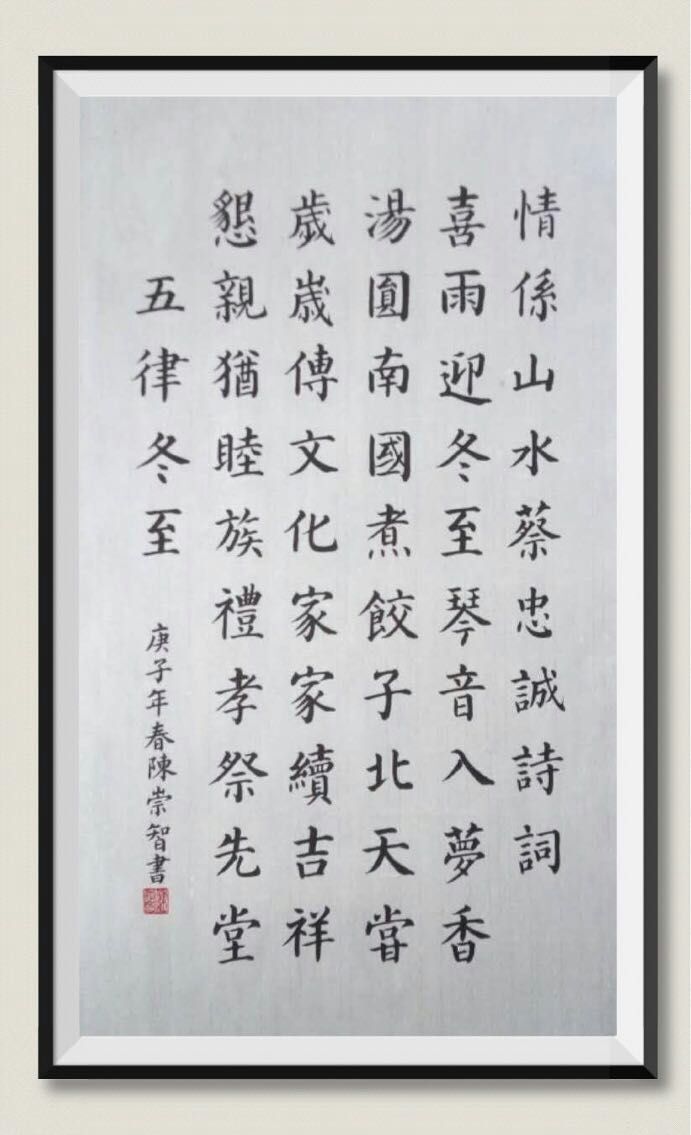 情係山水蔡忠誠詩詞
喜雨迎冬至琴音入夢香
湯圓南國煮餃子北天嘗
歲歲傳文化家家續吉祥
懇親猶睦族禮孝祭先堂
五律冬至
庚子年春陳崇智書